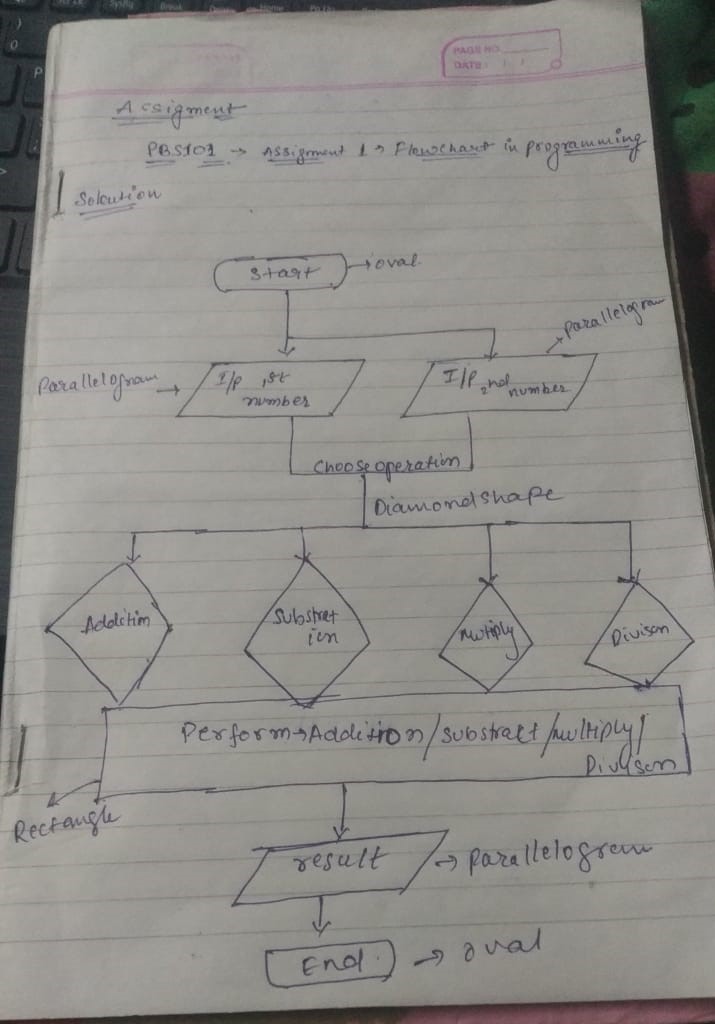 PAGE NO.
DATE: / /
Assigment
PBS101 → Assignment 1 → Flowchart in programming
Solution
Start → oval
Parallelogram
Parallelogram → I/P 1st number
I/P 2nd number
Choose operation
Diamond shape
Addition
Substrat
ion
Multiply
Divison
Perform → Addition/substract/multiply/
Divison
Rectangle
result → Parallelogram
End. → oval